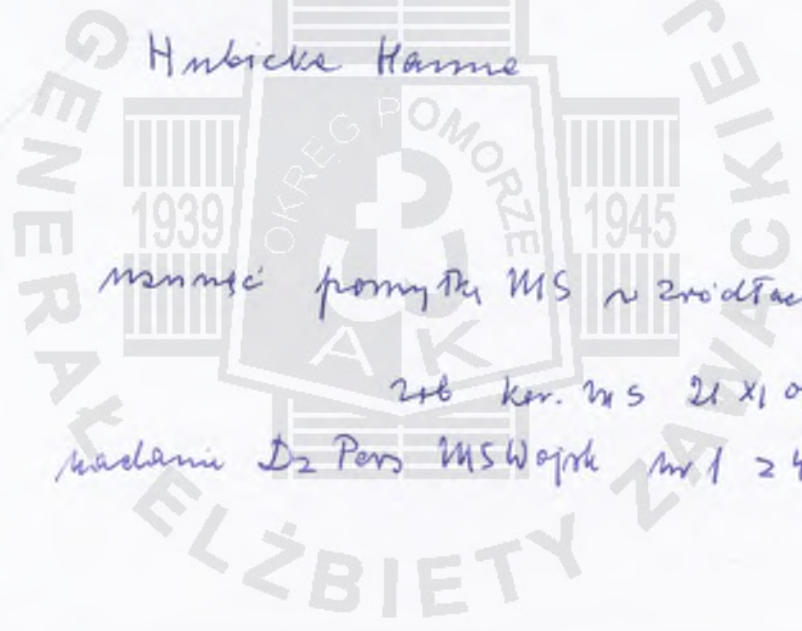 Hubicka Hanna
usunąć pomyłkę MS w źródłac
zob ker. MS 21 XI 0
nadanie Dz Pers MSWojsk nr 1 z 4
GENERAŁ ELŻBIETY ZAWACKIEJ
OKRĘG POMORZE
1939 1945
AK